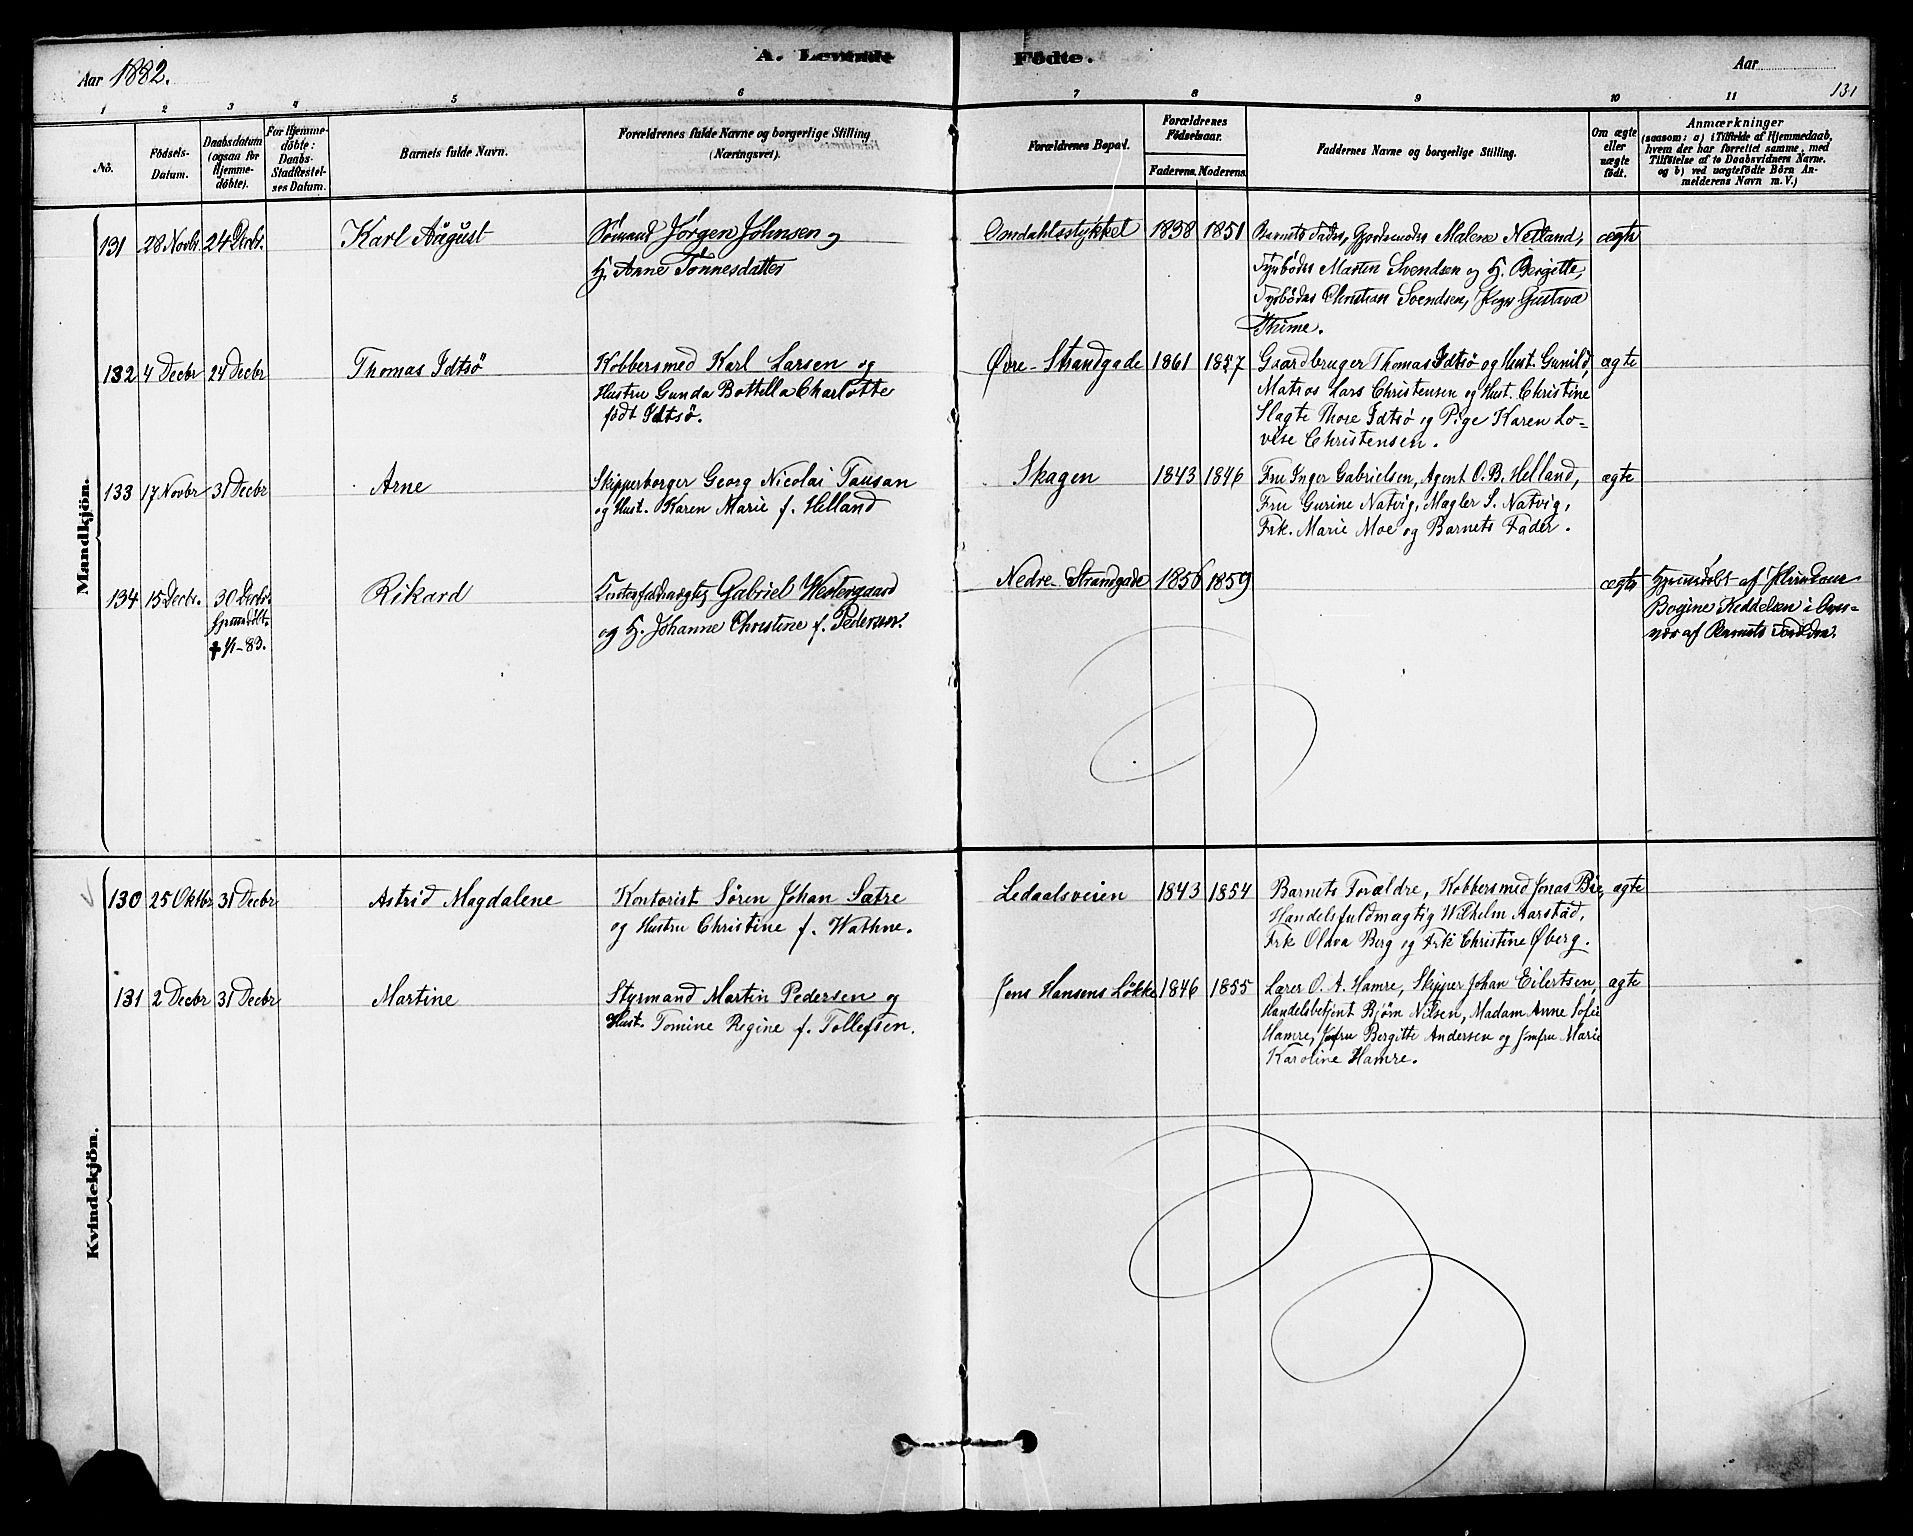 Aar 1882.
A. Levende
Fødte.
Aar
131
1 2 3 4 5 6 7 8 9 10 11
No.
Fødsels-
Datum.
Daabsdatum
(ogsaa for
Hjemme-
døbte).
For Hjemme-
døbte:
Daabs-
Stadfæstel-
ses Datum.
Barnets fulde Navn.
Forældrenes fulde Navne og borgerlige Stilling
(Næringsvei).
Forældrenes Bopæl.
Forældrenes
Fødselsaar.
Faderens. Moderens.
Faddernes Navne og borgerlige Stilling.
Om ægte
eller
uægte
født.
Anmærkninger
(saasom: a) i Tilfælde af Hjemmedaab,
hvem der har forrettet samme, med
Tilføielse af to Daabsvidners Navne.
og b) ved uægtefødte Børn An-
melderens Navn m. V.)
Mandkjön.
131 28 Novbr. 24 Decbr. Karl August
Sømand Jörgen Johnsen og
H. Anne Tønnesdatter
Omdahlsstykket 1838 1851
Barnets Fader, Gjordemoder Malene Netland,
Fyrbøder Martin Svendsen og H. Bergitte,
Fyrbøder Christian Svendsen, Pige Gustava
Thime.
ægte
132 4 Decbr 24 Decbr Thomas Idtsö
Kobbersmed Karl Larsen og
Hustru Gunda Bottella Charlotte
födt Idtsö.
Øvre-Strandgade 1861 1857
Gaardbruger Thomas Idtsö og Hust. Gunild,
Matros Lars Christensen og Hust. Christine
Slagte Thore Idtsö og Pige Karen Lo-
vise Christensen.
ægte
133 17 Novbr 31 Decbr Arne
Skipperborger Georg Nicolai Tausan
og Hust. Karen Marie f. Helland
Skagen 1843 1846
Fru Inger Gabrielsen, Agent O. B. Helland,
Fru Gurine Natvig, Mægler S. Natvig,
Frk. Marie Moe og Barnets Fader.
ægte
134 15 Decbr. 30 Decbr.
Hjemmdbt.
† 1/1-83.
Rikard
Gabriel Westergaard
og H. Johanne Christine f. Pedersen.
Nedre-Strandgade 1856 1859
ægte
Hjemmedøbt af
Bogine Keddelsen i Over-
vær af Barnets Forældre.
Kvindekjön.
130 25 Oktbr 31 Decbr Astrid Magdalene
Kontorist Sören Johan Sætre
og Hustru Christine f. Wathne.
Ledaalsveien 1843 1854
Barnets Forældre, Kobbersmed Jonas Bie,
Handelsfuldmægtig Wilhelm Aarstad,
Frk Oldva Berg og Frk Christine Øberg.
ægte
131 2 Decbr 31 Decbr Martine
Styrmand Martin Pedersen og
Hust. Tomine Regine f. Tollefsen.
Jens Hansens Løkke 1846 1855
Lærer O. A. Hamre, Skipper Johan Eilertsen,
Handelsbetjent Bjørn Nilsen, Madam Anne Sofie
Hamre, Jfru Bergitte Andersen og Jomfru Marie
Karoline Hamre.
ægte